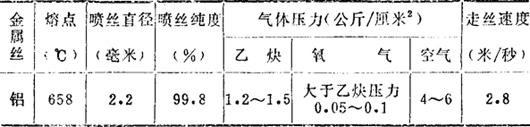 金属丝 熔点(℃) 喷丝直径(毫米) 喷丝纯度(%) 气体压力(公斤/厘米²) 走丝速度(米/秒)
乙炔 氧气 空气
铝 658 2.2 99.8 1.2～1.5 大于乙炔压力0.05～0.1 4～6 2.8